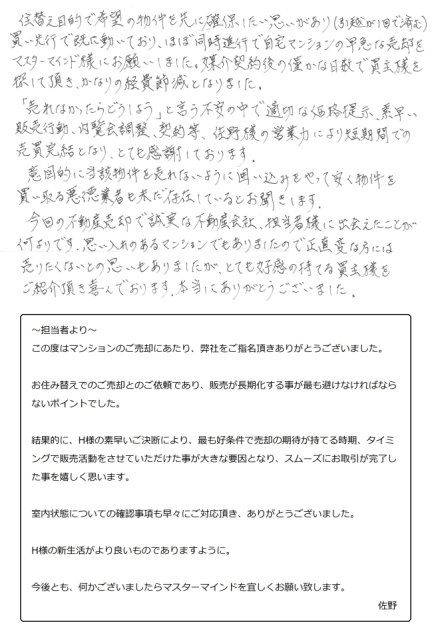 住替え目的で希望の物件を先に確保したい思いがあり(引越が1回で済む)
買い先行で既に動いており、ほぼ同時進行で自宅マンションの早急な売却を
マスターマインド様にお願いしました。媒介契約後の僅かな日数で買主様を
探して頂き、かなりの経費節減となりました。
「売れなかったらどうしよう」と言う不安の中で適切な価格提示、素早い
販売行動、内覧会調整、契約等、佐野様の営業力により短期間での
売買完結となり、とても感謝しております。
意図的に当該物件を売れないように囲い込みをやって安く物件を
買い取る悪徳業者も未だ存在しているとお聞きします。
今回の不動産売却で誠実な不動産会社、担当者様に出会えたことが
何よりです。思い入れのあるマンションでもありましたので正直変な方には
売りたくないとの思いもありましたが、とても好感の持てる買主様を
ご紹介頂き喜んでおります。本当にありがとうございました。
～担当者より～
この度はマンションのご売却にあたり、弊社をご指名頂きありがとうございました。
お住み替えでのご売却とのご依頼であり、販売が長期化する事が最も避けなければなら
ないポイントでした。
結果的に、H様の素早いご決断により、最も好条件で売却の期待が持てる時期、タイミ
ングで販売活動をさせていただけた事が大きな要因となり、スムーズにお取引が完了し
た事を嬉しく思います。
室内状態についての確認事項も早々にご対応頂き、ありがとうございました。
H様の新生活がより良いものでありますように。
今後とも、何かございましたらマスターマインドを宜しくお願い致します。
佐野